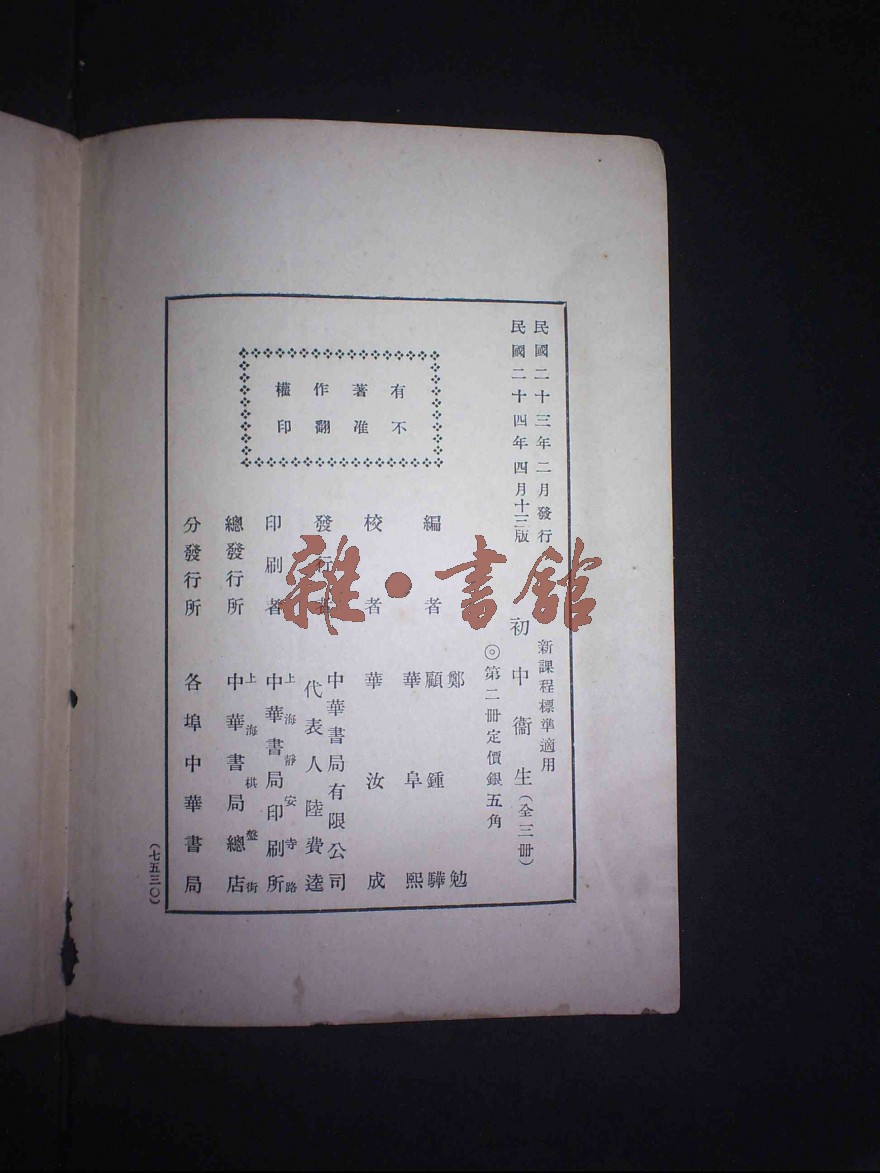 民國二十三年二月發行
民國二十四年四月十三版
新課程標準適用
初中衞生(全三册)
◎第二册定價銀五角
有著作權
不准翻印
編者
鄭勉
顧鍾驊
華阜熙
校者
華汝成
發行者
中華書局有限公司
代表人陸費逵
印刷者
上海靜安寺路
中華書局印刷所
總發行所
上海棋盤街
中華書局總店
分發行所
各埠中華書局
(七五三〇)
雜·書館